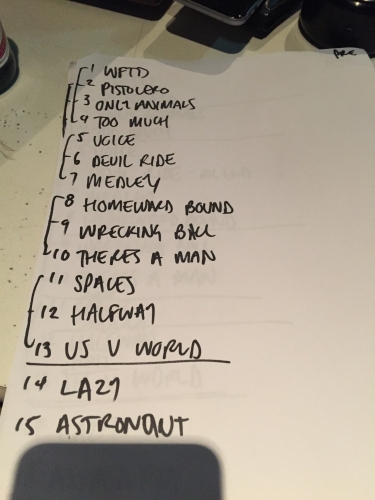 ARE
1 WFTD
2 PISTOLERO
3 ONLY ANIMALS
4 TOO MUCH
5 VOICE
6 DEVIL RIDE
7 MEDLEY
8 HOMEWARD BOUND
9 WRECKING BALL
10 THERES A MAN
11 SPACES
12 HALFWAY
13 US V WORLD
14 LAZY
15 ASTRONAUT